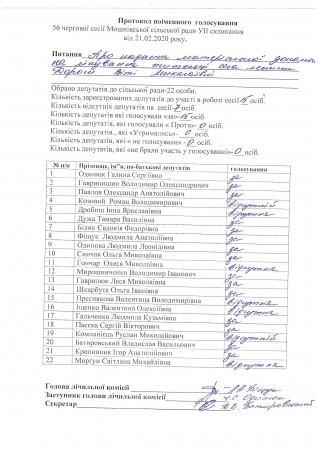 Протокол поіменного голосування
56 чергової сесії Мошнівської сільської ради УІІ скликання
від 21.02.2020 року.
Питання Про надання матеріальної допомоги
на лікування жительці села
Вірі Миколаївні
Обрано депутатів до сільської ради-22 особи.
Кількість зареєстрованих депутатів до участі в роботі сесії 15 осіб
Кількість відсутніх депутатів на сесії-7 осіб.
Кількість депутатів, які голосували «за»-15 осіб
Кількість депутатів, які голосували « Проти»- 0 осіб.
Кількість депутатів, які «Утримались»- 0 осіб.
Кількість депутатів, які « не голосували» -0 осіб.
Кількість депутатів, які «не брали участь у голосуванні»- 0 осіб.
№ п/п Прізвище, ім"я, по-батькові депутатів голосування
1 Одинюк Галина Сергіївна за
2 Гаврипишин Володимир Олександрович за
3 Павлов Олександр Анатолійович за
4 Кожний Роман Володимирович відсутній
5 Дробиш Інна Ярославівна відсутня
6 Дужа Тамара Василівна за
7 Бідик Євдокія Федорівна за
8 Фіщук Людмила Анатоліївна за
9 Одинока Людмила Леонідівна за
10 Синчак Ольга Миколаївна за
11 Гончар Олеся Миколаївна за
12 Мирошниченко Володимир Іванович за
13 Гаврилюк Леся Миколаївна за
14 Шкарбута Ольга Іванівна за
15 Преснякова Валентина Володимирівна відсутня
16 Іщенко Валентина Олексіївна відсутня
17 Гальченко Людмила Кузьмівна за
18 Пасєка Сергій Вікторович за
19 Компанієць Руслан Миколайович відсутній
20 Батировський Владислав Васильович за
21 Кропивник Ігор Анатолійович за
22 Моргун Світлана Михайлівна відсутня
Голова лічильної комісії
Заступник голови лічильної комісії
Секретар